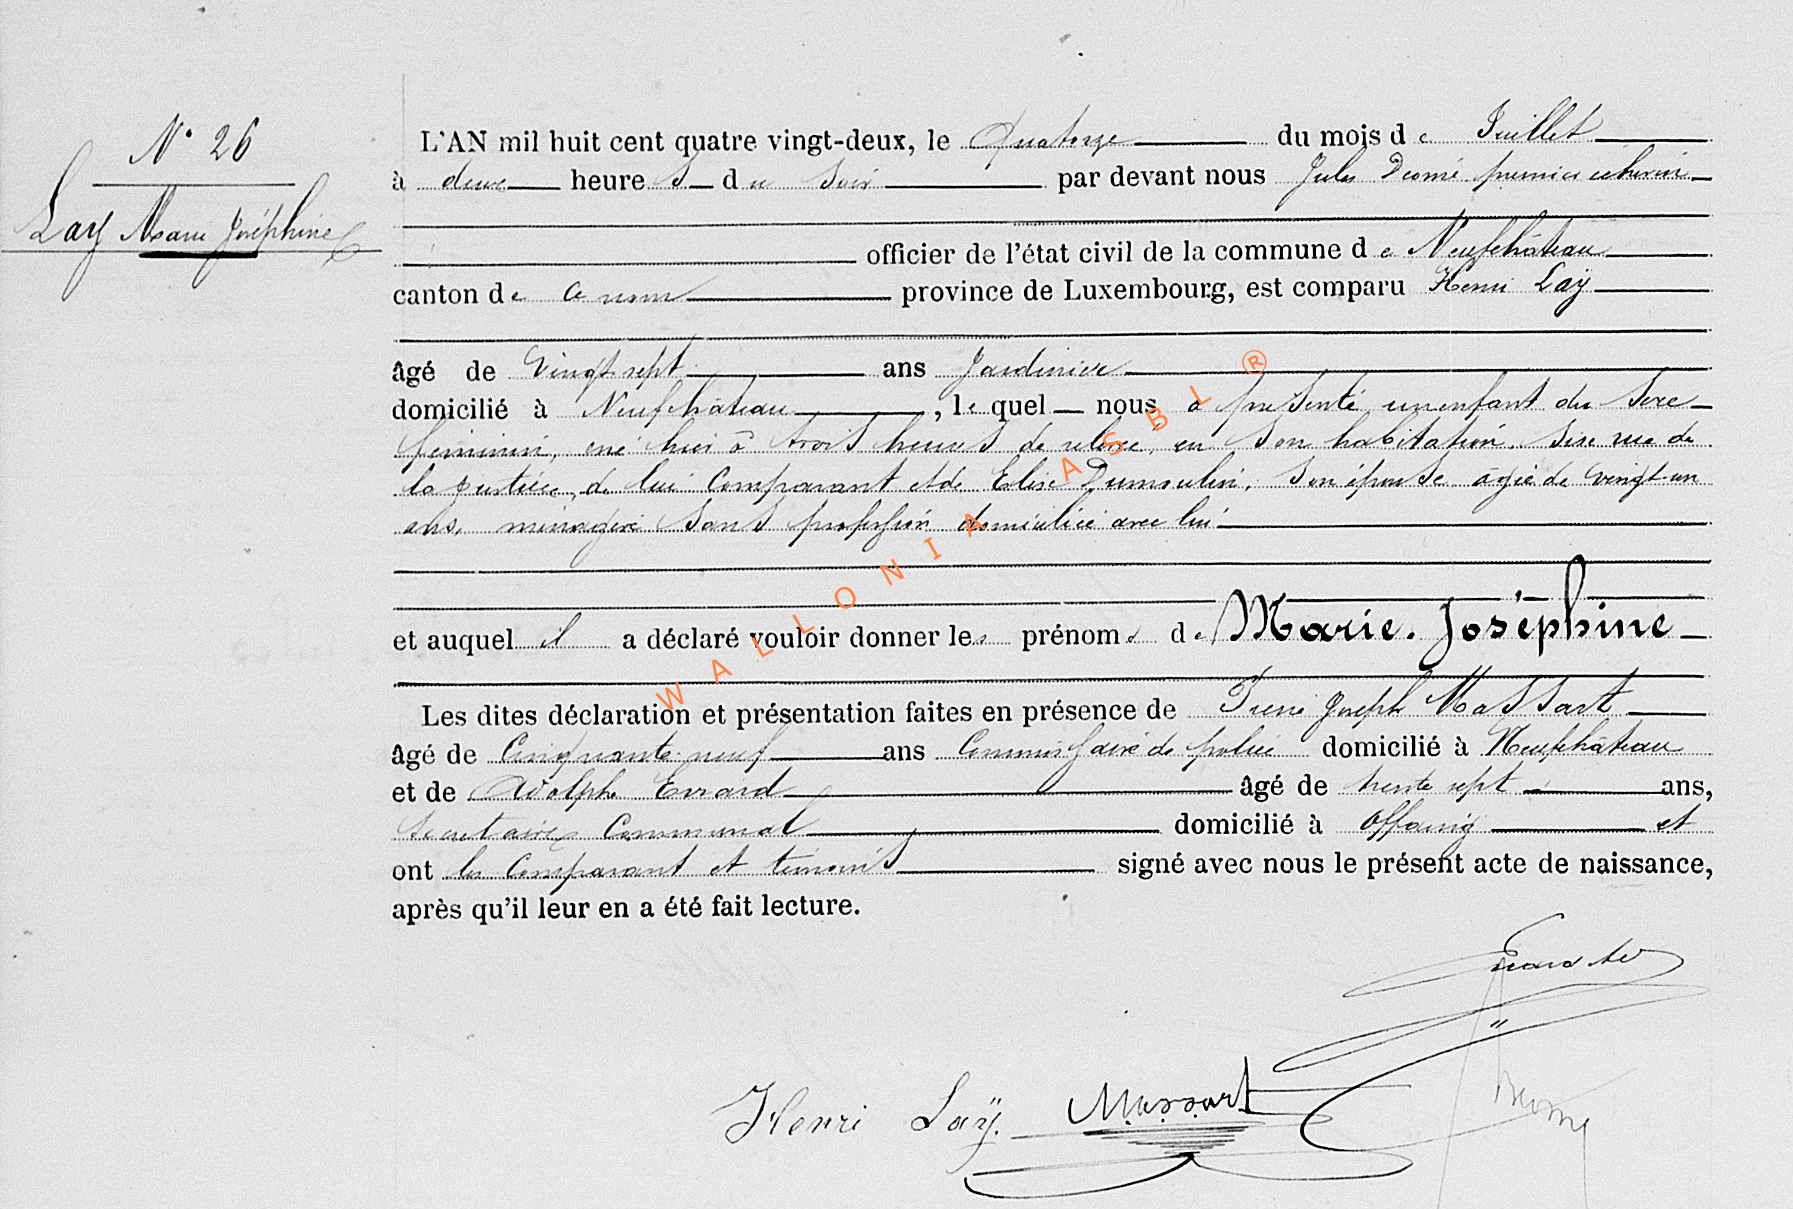 N° 26
Laÿ Marie Joséphine
L'AN mil huit cent quatre vingt-deux, le Quatorze du mois de Juillet
à deux heures du soir par devant nous Jules Diomé premier échevin
officier de l'état civil de la commune de Neufchâteau
canton de ce nom province de Luxembourg, est comparu Henri Laÿ
âgé de vingt sept ans Jardinier
domicilié à Neufchâteau, lequel nous a présenté un enfant du sexe
féminin, né hier à trois heures de relevée, en son habitation, sise rue de
la justice, de lui comparant et de Elise Dumoulin, son épouse agée de vingt un
ans, ménagère sans profession domiciliée avec lui
et auquel il a déclaré vouloir donner les prénoms de Marie. Joséphine
Les dites déclaration et présentation faites en présence de Pierre Joseph Massart
âgé de Cinquante neuf ans Commissaire de police domicilié à Neufchâteau
et de Adolphe Evrard âgé de trente sept ans,
Secrétaire Communal domicilié à Offaing et
ont les Comparant et témoins signé avec nous le présent acte de naissance,
après qu'il leur en a été fait lecture.
Henri Laÿ. Massart
WALLONIA ASBL ®